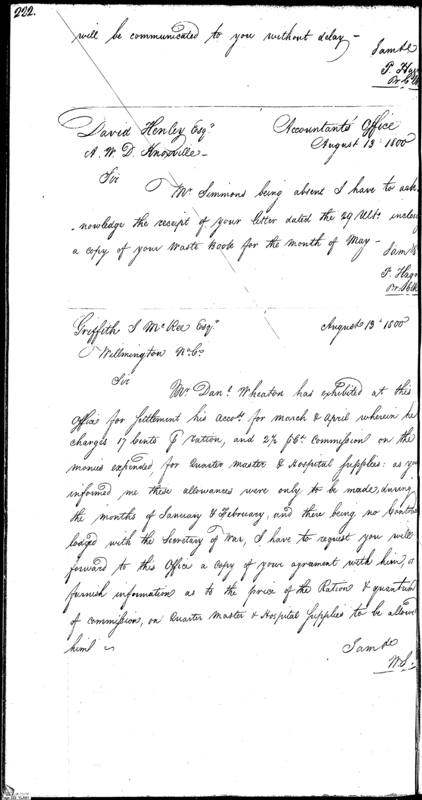 222.
will be communicated to you without delay –
I am &c
P. Hag
Pr. Clk
David Henley Esqr.
Accountants Office
A. W. D. Knoxville –
August 13th 1800
Sir
Mr. Simmons being absent I have to ack
nowledge the receipt of your letter dated the 29 Ulto. inclos
a copy of your Waste Book for the month of May –
I am &c
P. Hagn
Pr. Clk
Griffith J McRee Esqr.
August 13th 1800
Willmington No. Co.
Sir
Mr. Danl. Wheaton has exhibited at this
Office for settlement his Accots. for March & April wherein he
charges 17 Cents P ration, and 2½ P Ct. Commission on the
monies expended, for Quarter Master & Hospital supplies: as you
informed me these allowances were only to be made, during
the months of January & February, and there being no Contra
lodged with the Secretary of War, I have to request you will
forward to this Office a copy of your agrement with him, or
furnish information as to the price of the Ration & quantum
of commission, on Quarter Master & Hospital supplies to be allowe
him –
I am &c
W. S.